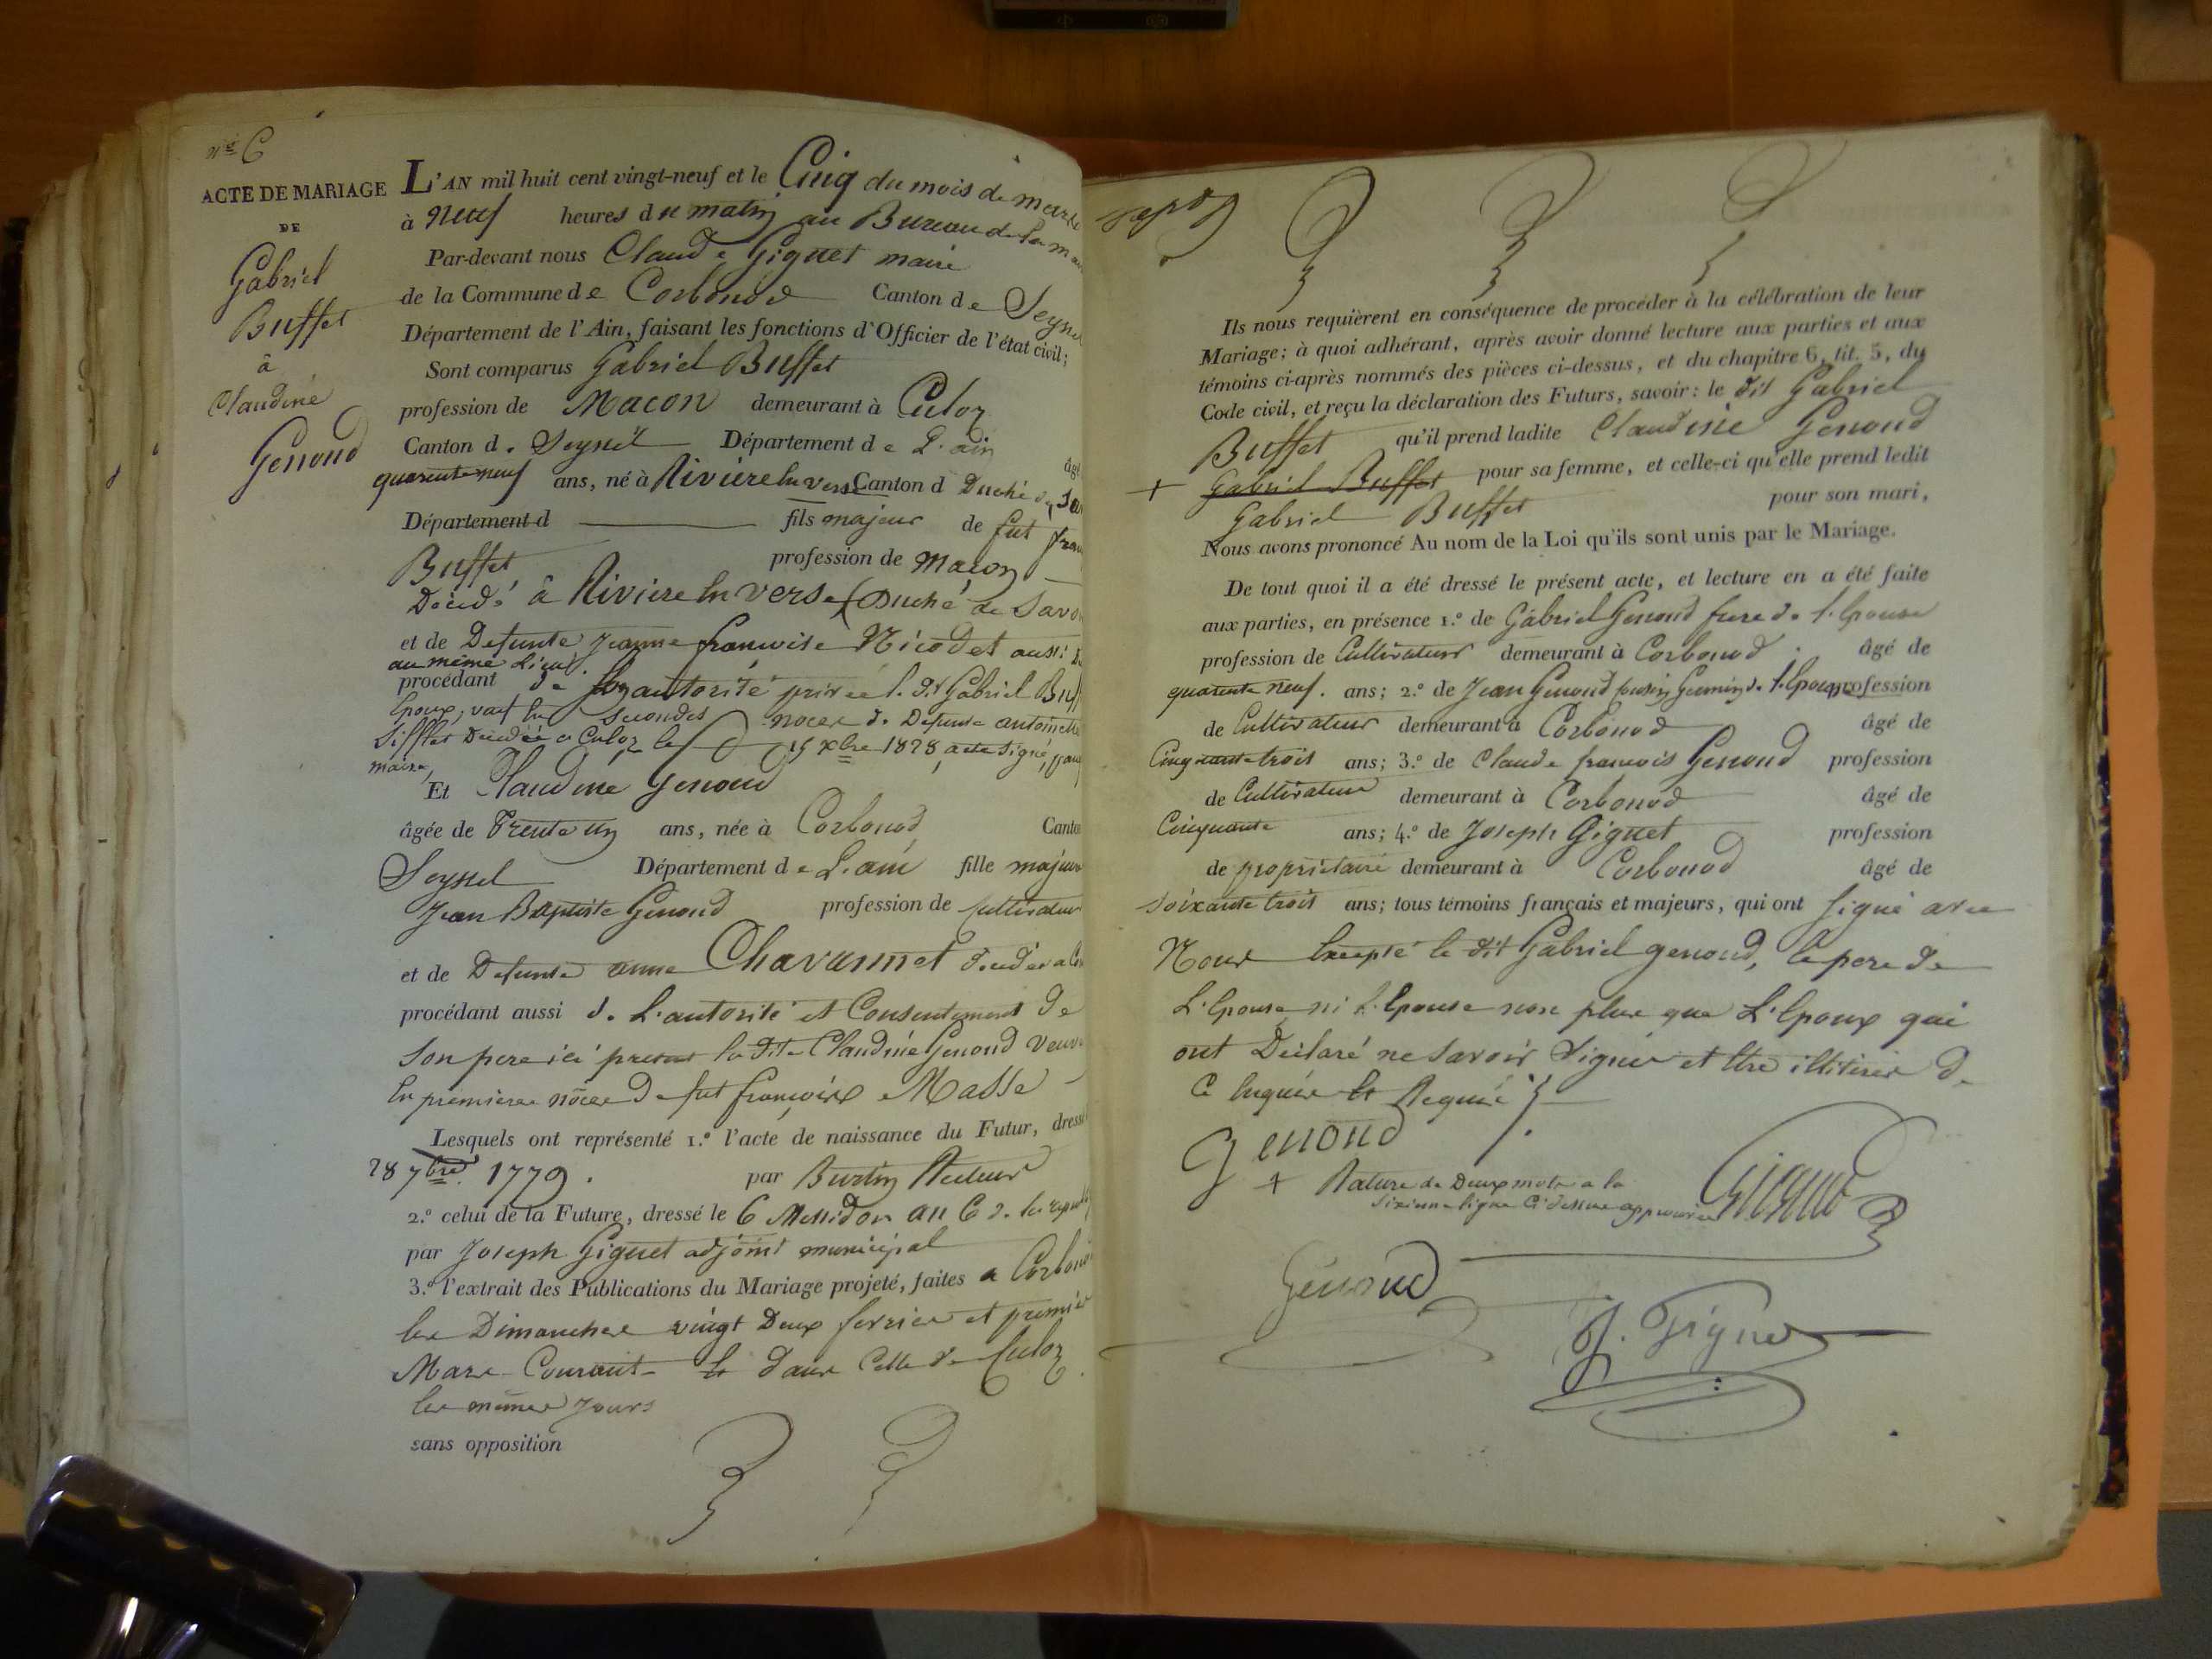 N.o 6
ACTE DE MARIAGE
DE
Gabriel
Buffet
à
Claudine
Genoud
L'AN mil huit cent vingt-neuf et le Cinq du mois de mars
à neuf heures du matin au Bureau de la
Par-devant nous Claude Giguet maire
de la Commune de Corbonod Canton de Seyssel
Département de l'Ain, faisant les fonctions d'Officier de l'état civil;
Sont comparus Gabriel Buffet
profession de Macon demeurant à Culoz
Canton de Seyssel Département de L'ain
quarante neuf ans, né à Riviere En verse Canton d Duché de
Département d fils majeur de fut
Buffet profession de maçon
Décédé à Riviere En verse (Duché de Savo
et de Defunte Jeanne francoise Nicodet aussi
au même Lieu
procédant de son autorité privée l. dit Gabriel Buff
Epoux, veuf En Secondes noces de Defunte antoinette
Sifflet Décédée a Culoz le 15 xbre 1828, acte signé
maire,
Et Claudine Genoud
âgée de Trente un ans, née à Corbonod Canton
Seyssel Département de L'ain fille majeure
Jean Baptiste Genoud profession de Cultivateur
et de Defunte anne Chavannet décédée a
procédant aussi de L'autorité et Consentement de
Son pere ici présent la dite Claudine Genoud veuve
En premieres noces de fut françois Masse
Lesquels ont représenté 1.° l'acte de naissance du Futur, dressé
28 7bre 1779. par Burtin Recteur
2.° celui de la Future, dressé le 6 Messidor an 6 de la
par Joseph Giguet adjoint municipal
3.° l'extrait des Publications du Mariage projeté, faites a Corbonod
les Dimanches vingt Deux fevrier et premier
Mars Courant Et dans Celle de Culoz
les mêmes Jours
sans opposition
Ils nous requièrent en conséquence de procéder à la célébration de leur
Mariage; à quoi adhérant, après avoir donné lecture aux parties et aux
témoins ci-après nommés des pièces ci-dessus, et du chapitre 6, tit. 5, du
Code civil, et reçu la déclaration des Futurs, savoir: le dit Gabriel
Buffet qu'il prend ladite Claudine Genoud
+ Gabriel Buffet pour sa femme, et celle-ci qu'elle prend ledit
Gabriel Buffet pour son mari,
Nous avons prononcé Au nom de la Loi qu'ils sont unis par le Mariage.
De tout quoi il a été dressé le présent acte, et lecture en a été faite
aux parties, en présence 1.° de Gabriel Genoud frere de l'Epouse
profession de Cultivateur demeurant à Corbonod âgé de
quarante neuf. ans; 2.° de Jean Genoud Cousin Germain de l'Epouse profession
de Cultivateur demeurant à Corbonod âgé de
Cinquante trois ans; 3.° de Claude francois Genoud profession
de Cultivateur demeurant à Corbonod âgé de
Cinquante ans; 4.° de Joseph Giguet profession
de propriétaire demeurant à Corbonod âgé de
Soixante trois ans; tous témoins français et majeurs, qui ont signé avec
Nous Excepté le dit Gabriel genoud, le pere de
L'Epouse, ni l'Epouse non plus que L'Epoux qui
ont Déclaré ne savoir signer et Etre illitérés de
Ce Enquis Et Requis
Genoud
+ Rature de Deux mots a la
Sixieme ligne Ci dessus approuvée
Giguet
Genoud
J. Giguet